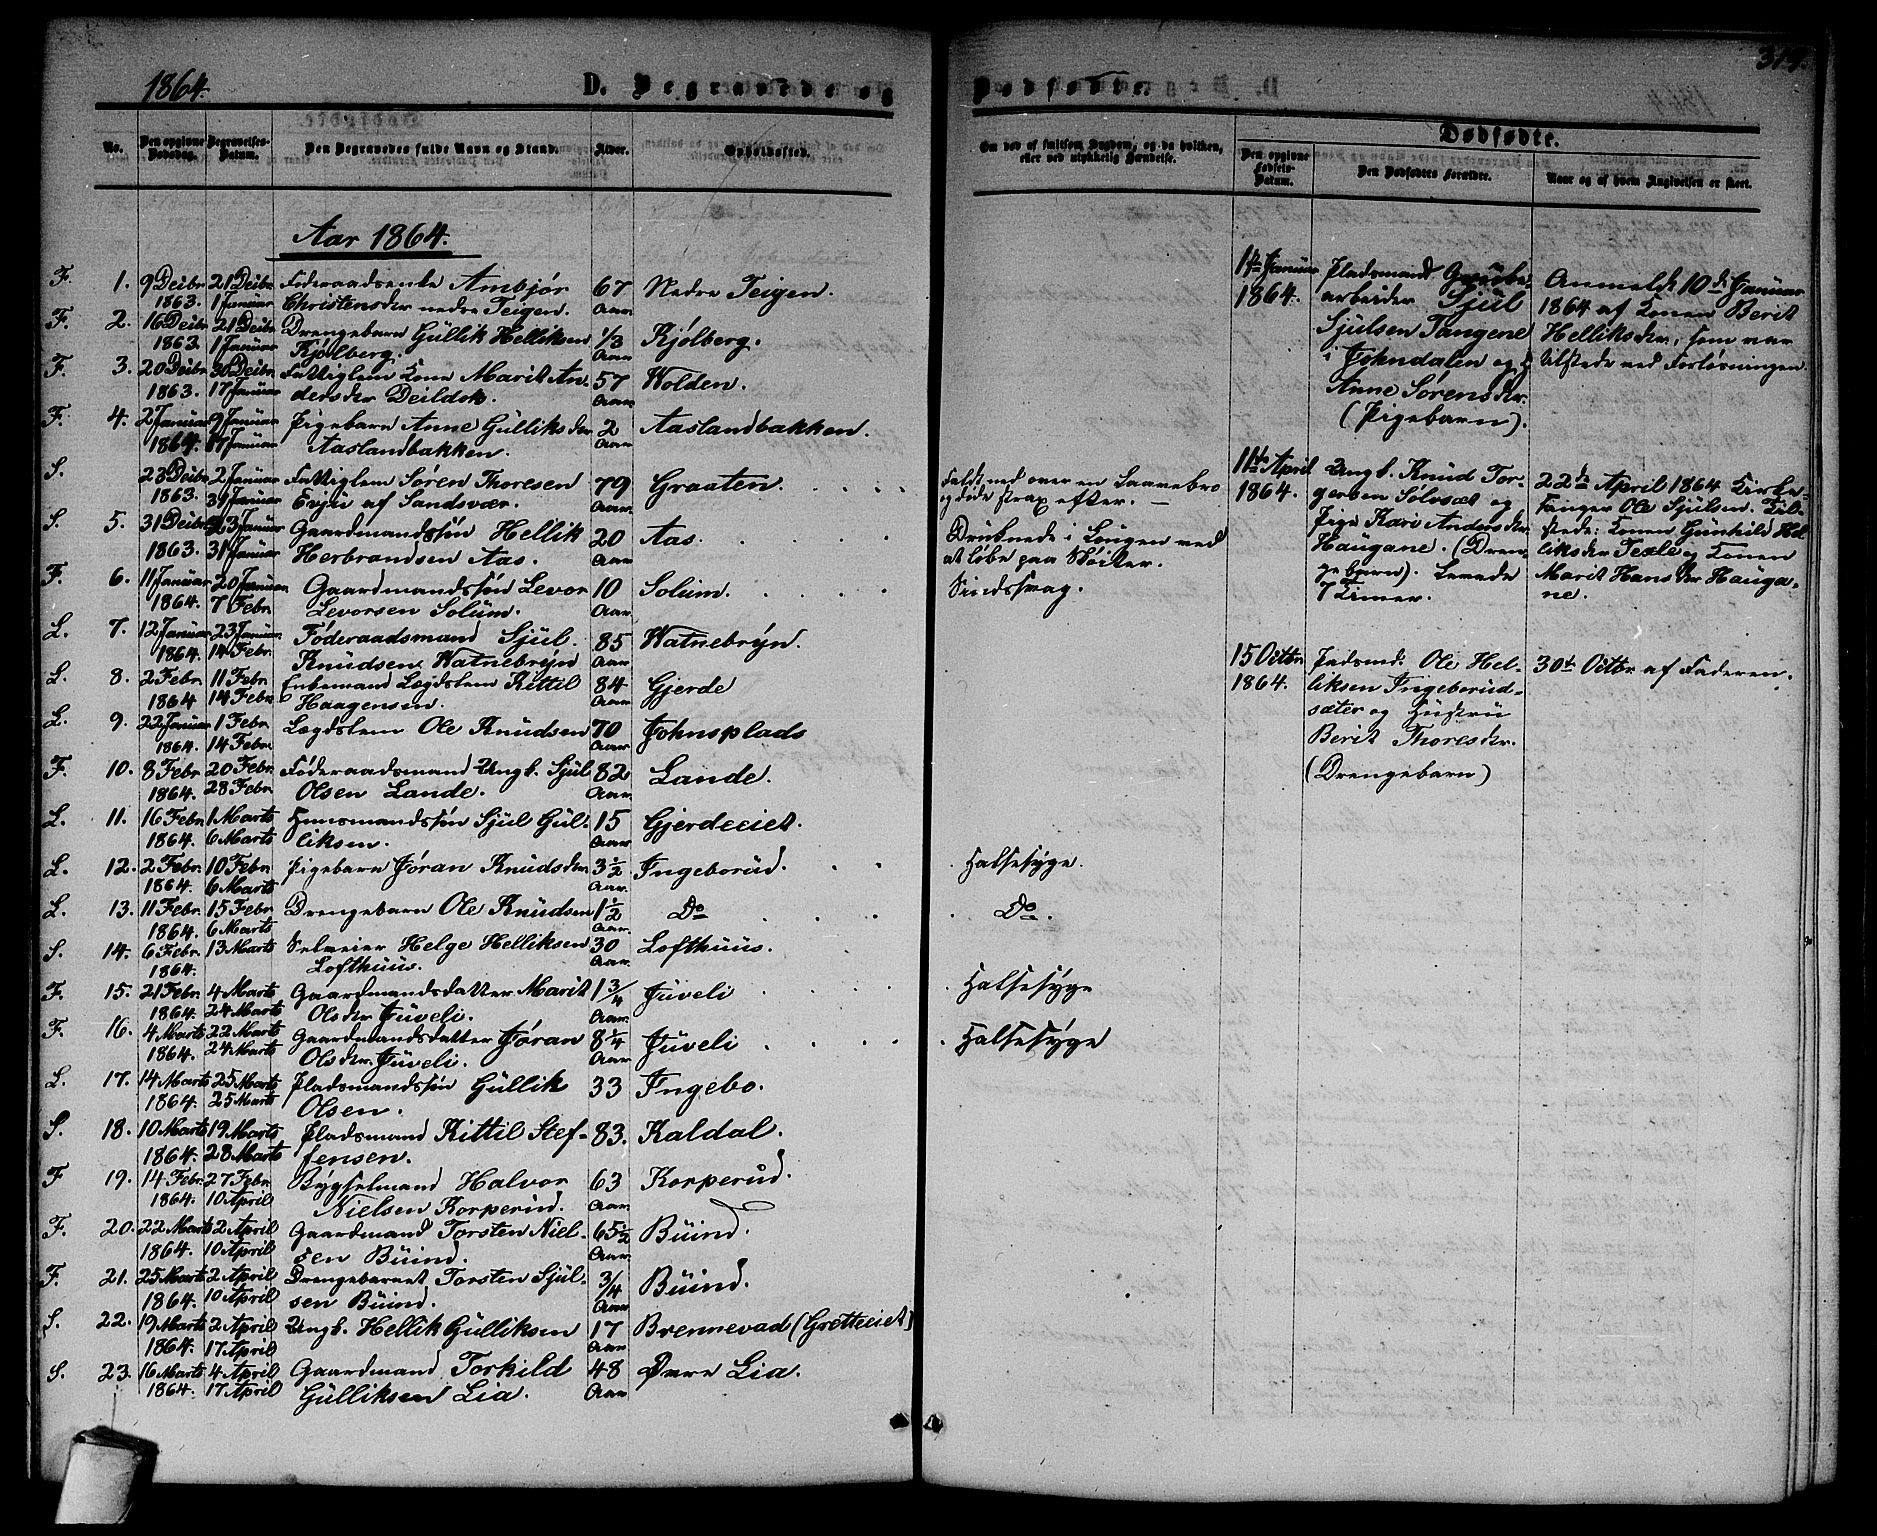 1864.
D. Begravede og
No.
Den opgivne Dødsdag.
Begravelses-Datum.
Den Begravedes fulde Navn og Stand.
Alder.
Opholdssted.
Aar 1864.
F. 1. 9 Decbr 21 Decbr Føderaadsenke Ambjør 67 Nedre Teigen.
1863. 1 Januar Christensdtr nedre Teigen. Aar
F. 2. 16 Decbr 21 Decbr Drengebarn Gullik Helliksen 1/3 Kjølberg.
1863. 1 Januar Kjølberg. Aar
F. 3. 20 Decbr 30 Decbr Fattiglem Kone Marit An- 57 Wolden.
1863. 17 Januar dersdtr Deildok. Aar
F. 4. 2 Januar 9 Januar Pigebarn Anne Gulliksdtr 2 Aaslandbakken.
1864. 17 Januar Aaslandbakken. Aar
S. 23 Decbr 2 Januar Fattiglem Søren Thoresen 79 Graaten.
1863. 31 Januar Evju af Sandsvær. Aar
S. 5. 31 Decbr 23 Januar Gaardmandssøn Hellik 20 Aas.
1863. 31 Januar Herbrandsen Aas. Aar
F. 6. 11 Januar 20 Januar Gaardmandssøn Levor 10 Solum.
1864. 7 Febr. Levorsen Solum. Aar
L. 7. 12 Januar 23 Januar Føderaadsmand Sjul 85 Watnebryn.
1864. 14 Febr. Knudsen Watnebryn Aar
L. 8. 2 Febr. 11 Febr Enkemand Lægdslem Kittil 84 Gjerde
1864 14 Febr. Haagensen. Aar
L. 9. 22 Januar 1 Febr. Lægdslem Ole Knudsen 70 Johnsplads
1864. 14 Febr. Aar
F. 10. 8 Febr. 20 Febr. Føderaadsmand Ungk. Sjul 82 Lande.
1864. 28 Febr. Olsen Lande. Aar
L. 11. 16 Febr. 1 Marts Huusmandssøn Sjul Gul- 15 Gjerdeeiet.
1864. 6 Marts liksen. Aar
L. 12. 2 Febr. 10 Febr. Pigebarn Jøran Knudsdtr 3 1/2 Ingeborud.
1864. 6 Marts Aar
L. 13. 11 Febr. 15 Febr. Drengebarn Ole Knudsen 1 1/2 Do
1864. 6 Marts Aar.
S. 14. 6 Febr. 13 Marts Selveier Helge Helliksen 30 Lofthuus.
1864. Lofthuus. Aar.
F. 15. 21 Febr. 4 Marts Gaardmandsdatter Marit 1 3/4 Juveli
1864. 24 Marts Olsdtr Juveli. Aar.
F. 16. 4 Marts 22 Marts Gaardmandsdatter Jøran 8 1/4 Juveli
1864. 24 Marts Olsdtr Juveli. Aar
L. 17. 14 Marts 25 Marts Pladsmandssøn Gullik 33 Ingebo.
1864. 25 Marts Olsen.
S. 18. 10 Marts 19 Marts Pladsmand Kittil Stef- 83. Kaldal.
1864. 28 Marts fensen.
F 19. 14 Febr. 27 Febr. Bygselmand Halvor 63 Korperud.
1864. 10 April Nielsen Korperud. Aar
F. 20. 22 Marts 2 April Gaardmand Torsten Niel- 65 1/2 Buind.
1864. 10 April sen Buind. Aar.
F. 21. 25 Marts 2 April Drengebarnet Torsten Sjul- 3/4 Buind.
1864. 10 April sen Buind. Aar
S. 22. 19 Marts 2 April Ungk. Hellik Gulliksen 17 Brennevad (Grøtteeiet)
1864. 17 April Aar
S. 23. 16 Marts 4 April Gaardmand Torkild 48 Øvre Lia.
1864. 17 April Gulliksen Lia. Aar
Dødfødte.
319.
Om død af saadan Sygdom, og da hvilken, eller ved ulykkelig Hændelse.
Dødfødte.
Den opgivne Fødsels-Datum.
Den Dødfødtes Forældre.
Naar og af hvem Angivelsen er skeet.
Faldt ned over en Laavebro
og døde strax efter. —
Druknede i Laugen ved
at løbe paa Skøiter.
Sindssvag.
Halsesyge.
Do.
Halsesyge
Halsesyge
1ste Januar
1864.
Pladsmand Grube-
arbeider Sjul
Sjulsen Tangene
i Johndalen og
Anne Sørensdtr.
(Pigebarn).
Anmeldt 10de Januar
1864 af Konen Berit
Helliksdtr, som var
tilstede ved Forløsningen.
11te April
1864.
Ungk. Knud Tor-
gersen Solvsæt og
Pige Kari Andersdtr
Haugane. (Dren-
gebarn). Levede
7 Timer.
22de April 1864 Kirke-
sanger Ole Sjulsen. Til-
stede: Konen Gunhild Hel-
liksdtr Texle og Konen
Marit Hansdtr Hauga-
ne.
15 Octbr
1864.
Pladsmd. Ole Hel-
liksen Ingeborud-
sæter og Hustru
Berit Thoresdtr.
(Drengebarn)
30te Octbr. af Faderen.